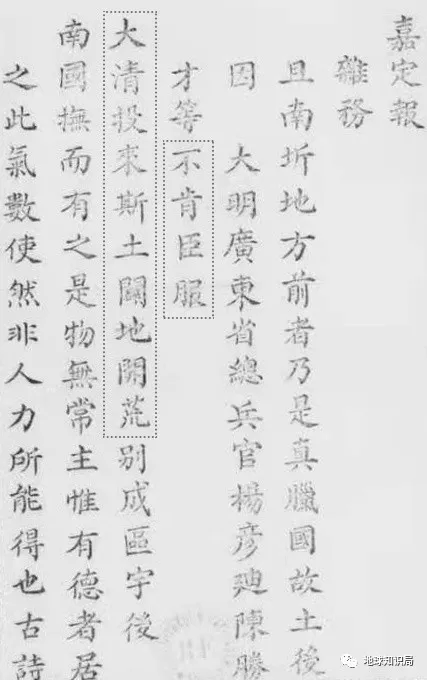 嘉定報
雜務
且南圻地方前者乃是真臘國故土後
因 大明廣東省總兵官楊彥廸陳勝
才等不肯臣服
大清投來斯土闢地開荒别成區宇後
南國撫而有之是物無常主惟有德者居
之此氣數使然非人力所能得也古詩
地球知识局